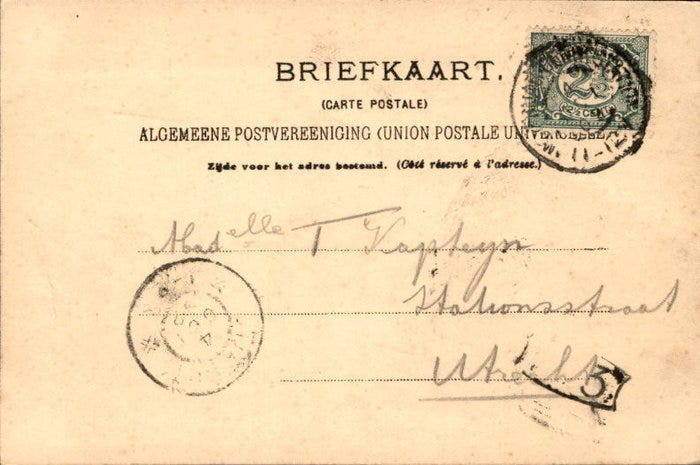 BRIEFKAART.
(CARTE POSTALE)
ALGEMEENE POSTVEREENIGING (UNION POSTALE UNIVERSELLE)
Zijde voor het adres bestemd. (Côté réservé à l'adresse.)
2½
(2½ CENT)
11-12
Madelle T Kapteyn
Stationsstraat
Utrecht
5